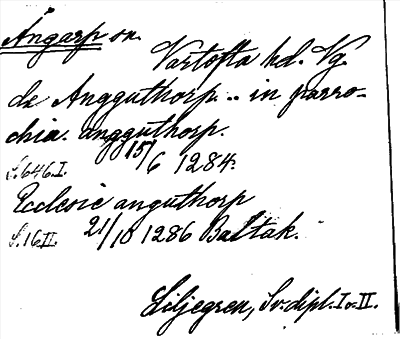 Ångarp sn.
Vartofta hd. Vg.
de Angguthorp .. in parro-
chia angguthorp.
S. 646. I. 15/6 1284.
Ecclesie anguthorp
S. 16. II. 21/10 1286 Baltak.
Liljegren, Sv. dipl. I o. II.